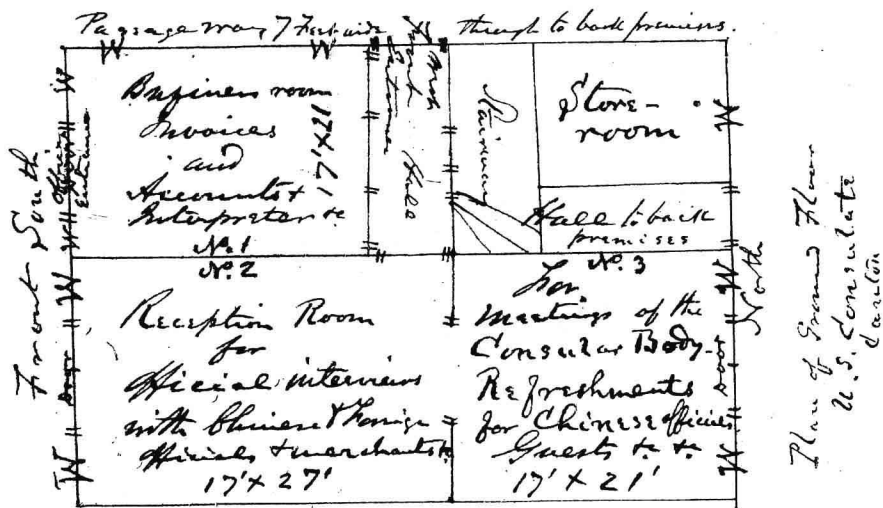 Passage way 7 Feet wide through to back premises.
Front South
W
W
W
W
W
W
Office Door
Entrance
Business room
Invoices
and
Accounts &
Interpreter &c
17' x 21'
No. 1
Front
Entrance
Hall
Stairway
Store-
room
Hall to back
premises
No. 2
Reception Room
for
Official interviews
with Chinese & Foreign
Officials & merchants &c
17' x 27'
Door
W
No. 3
For
Meetings of the
Consular Body.
Refreshments
for Chinese officials
Guests &c &c
17' x 21'
W
W
Door
W
North
Plan of Ground Floor
U.S. Consulate
Canton